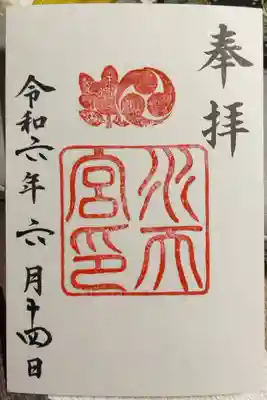 奉拝
水天宮印
令和六年六月十四日